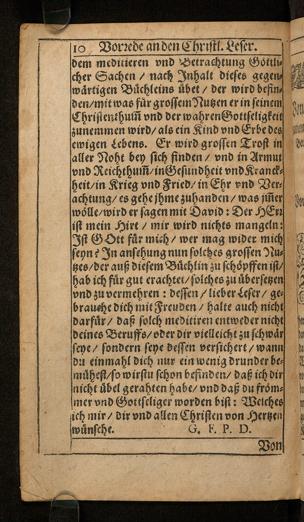 10 Vorrede an den Christl. Leser.
dem meditieren vnd Betrachtung Göttli-
cher Sachen / nach Inhalt dieses gegen-
wärtigen Büchleins übet / der wird befin-
den / mit was für grossem Nutzen er in seinem
Christenthum̃ vnd der wahren Gottseligkeit
zunemmen wird / als ein Kind vnd Erbe des
ewigen Lebens. Er wird grossen Trost in
aller Noht bey sich finden / vnd in Armut
vnd Reichthum̃ / in Gesundheit vnd Kranck-
heit / in Krieg vnd Fried / in Ehr vnd Ver-
achtung / es gehe jhme zuhanden / was jm̃er
wölle / wird er sagen mit David: Der HErr
ist mein Hirt / mir wird nichts mangeln:
Ist GOtt für mich / wer mag wider mich
seyn? In ansehung nun solches grossen Nu-
tzes / der auß diesem Büchlin zu schöpffen ist /
hab ich für gut erachtet / solches zu übersetzen
vnd zu vermehren: dessen / lieber Leser / ge-
brauche dich mit Freuden / halte auch nicht
darfür / daß solch meditiren entweder nicht
deines Beruffs / oder dir vielleicht zu schwär
seye / sondern seye dessen versichert / wann
du einmahl dich nur ein wenig drunder be-
mühest / so wirstu schon befinden / daß ich dir
nicht übel gerahten habe / vnd daß du fröm-
mer vnd Gottseliger worden bist: Welches
ich mir / dir vnd allen Christen von Hertzen
wünsche. G. F. P. D.
Von